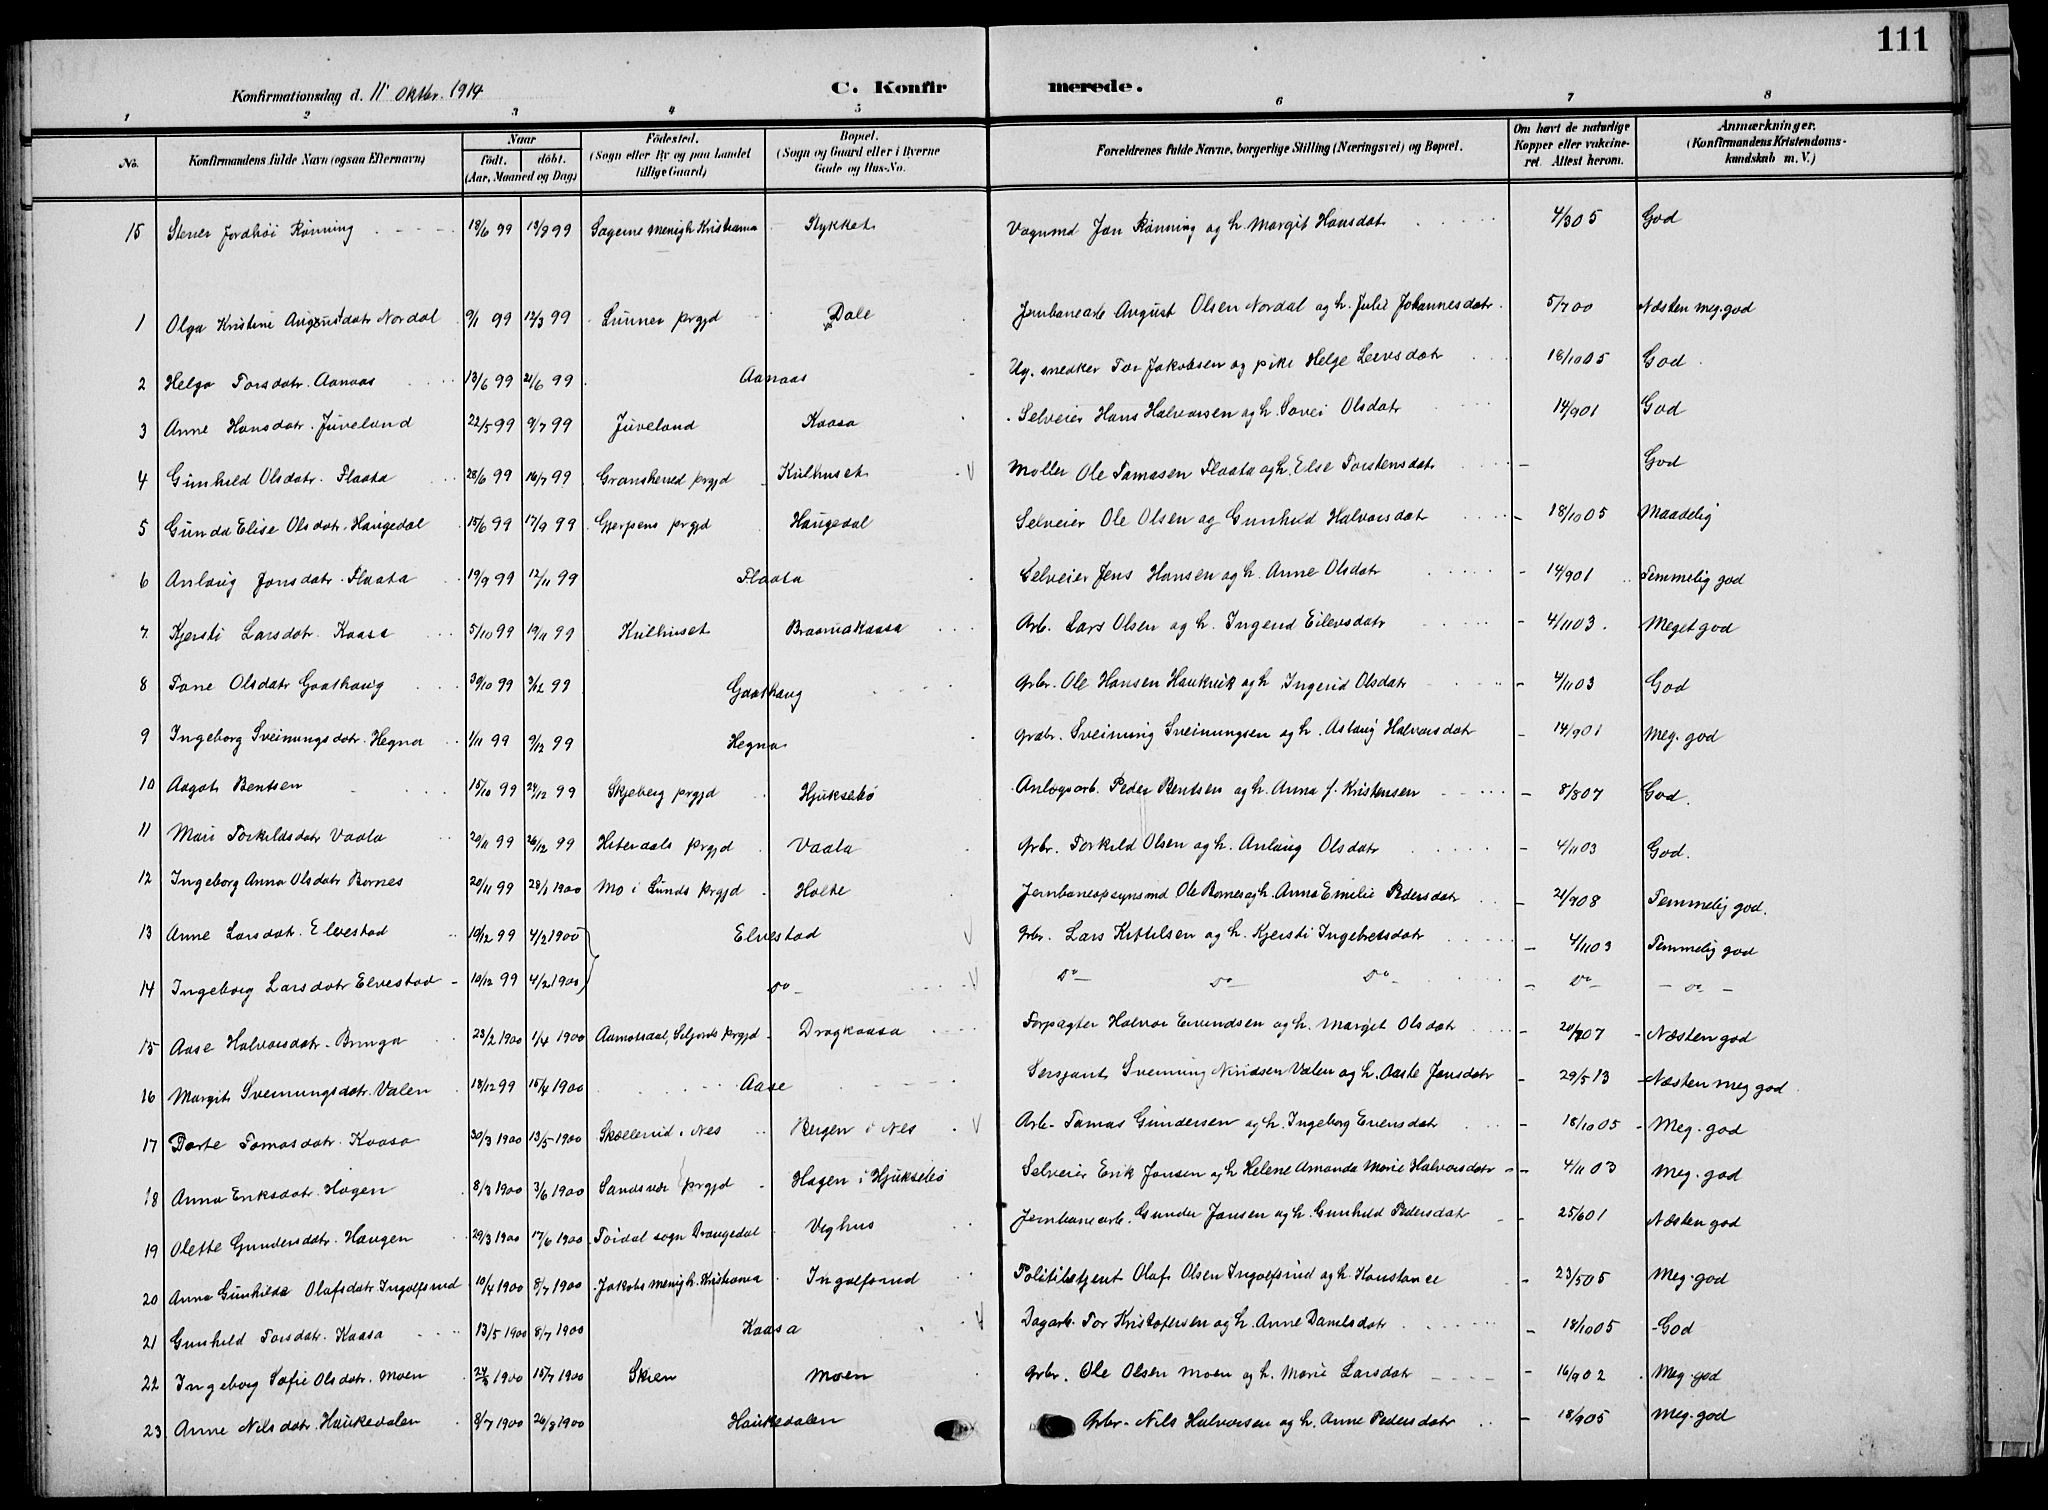 111
Konfirmationsdag d. 11' Oktbr. 1914 C. Konfirmerede.
1 2 3 4 5 6 7 8
No. Konfirmandens fulde Navn (ogsaa Efternavn) Naar født. døbt. (Aar, Maaned og Dag) Fødested. (Sogn eller By og paa Landet tillige Gaard) Bopæl. (Sogn og Gaard eller i Byerne Gade og Hus-No. Forældrenes fulde Navne, borgerlige Stilling (Næringsvei) og Bopæl. Om havt de naturlige Kopper eller vaccineret. Attest herom. Anmærkninger. (Konfirmandens Kristendomskundskab m. V.)
15 Stener Jordhøi Rønning 19/6 99 13/9 99 Sagene menigh. Kristiania Rykket Vognmd Jon Rønning og h. Margit Hansdatr 4/3 05 God
1 Olga Kristine Augustdatr Nordal 9/1 99 12/3 99 Lunner prgjd Dale Jernbanearb August Olsen Nordal og h. Julie Johannesdatr 5/7 00 Næsten meg. god
2 Helga Torsdatr. Aanaas 13/6 99 21/6 99 Aanaas Ug. snedker Tor Jakobsen og pike Helge Leivsdatr 18/10 05 God
3 Anne Hansdatr. Juveland 22/5 99 9/7 99 Juveland Kaasa Selveier Hans Halvorsen og h. Sovei Olsdatr 14/9 01 God
4 Gunhild Olsdatr. Flaata 28/6 99 16/7 99 Gransherred prgjd Kulhuset Møller Ole Tamasen Flaata og h. Else Torstensdatr – God
5 Gunda Elise Olsdatr. Haugedal 15/6 99 17/9 99 Gjerpens prgjd Haugedal Selveier Ole Olsen og Gunhild Halvorsdatr – 18/10 05 Maadelig
6 Anlaug Jensdatr. Flaata 19/9 99 12/11 99 Flaata Selveier Jens Hansen og h. Anne Olsdatr – 14/9 01 Temmelig god
7 Kjersti Larsdatr. Kaasa 5/10 99 19/11 99 Kulhuset Braamakaasa Arb. Lars Olsen og h. Ingerid Eilevsdatr – 4/11 03. Meget god
8 Tone Olsdatr Gaathaug 30/10 99 3/12 99 Gaathaug Grbr. Ole Hansen Haukvik og h Ingerid Olsdatr – 4/11 03 God
9 Ingeborg Sveinungsdatr. Hegna 1/11 99 9/12 99 Hegna Grdbr. Sveinung Sveinungsen og h. Aslaug Halvorsdatr – 14/9 01 Meg. god
10 Aagot Bentsen 15/10 99 24/12 99 Skjeberg prgjd Hjuksebø Anlægsarb. Peder Bentsen og h. Anna f. Kristensen – 8/8 07 God.
11 Mari Torkildsdatr Vaala 29/11 99 26/12 99 Hiterdals prgjd Vaala Grbr. Torkild Olsen og h. Anlaug Olsdatr – 4/11 03 God.
12 Ingeborg Anna Olsdatr Bornes 20/11 99 28/1 1900 Mo i Lunds prgjd Holte Jernbaneopsynsmd Ole Bornes og h. Anna Emilie Pedersdatr – 21/9 08 Temmelig god.
13 Anne Larsdatr. Elvestad 10/12 99 4/2 1900 Elvestad Grbr. Lars Kittilsen og h. Kjersti Ingebretsdatr – 4/11 03 Temmelig god
14 Ingeborg Larsdatr Elvestad – 10/12 99 4/2 1900 Do – Do – Do – Do – – Do – – Do –
15 Aase Halvorsdatr. Bringa 23/2 1900 1/4 1900 Aamotsdal, Seljords prgjd Dragkaasa Forpagter Halvor Eivindsen og h. Margit Olsdatr – 20/7 07 – Næsten god
16 Margit Sveinungsdatr. Valen 18/12 99 15/4 1900 Aase Sersjant Sveinung Niridsen Valen og h. Aaste Jonsdatr – 29/5 13 – Næsten meg god
17 Dorte Tomasdatr. Kaasa 30/3 1900 13/5 1900 Skollerud i Nes Bergen i Nes Arb. Tamas Gundersen og h. Ingeborg Evensdatr – 18/10 05 – Meg. god
18 Anna Eriksdatr. Hagen 8/3 1900 3/6 1900 Sandsvær prgjd Hagen i Hjuksebø Selveier Erik Jonsen og h Helene Amanda Marie Halvorsdatr – 4/11 03 Meg. god
19 Olette Gundersdatr. Haugen 29/3 1900 17/6 1900 Tørdal sogn Drangedal Veghus Jernbanearb. Gunder Jansen og h. Gunhild Pedersdatr – 25/6 01 Næsten god
20 Anna Gunhilda Olafsdatr Ingolfsrud 10/4 1900 8/7 1900 Jakobs menigh. Kristiania Ingolfsrud Politibetjent Olaf Olsen Ingolfsrud og h. Konstance – 23/5 05 Meg. god
21 Gunhild Torsdatr. Kaasa 13/5 1900 8/7 1900 Kaasa Dagarb. Tor Kristofersen og h. Anne Danielsdatr – 18/10 05 – God
22 Ingeborg Sofie Olsdatr. Moen 1900 15/7 1900 Skien Moen Grbr. Ole Olsen Moen og h. Marie Larsdatr – 16/9 02 Meg. god
23 Anne Nilsdatr. Haukedalen 8/7 1900 26/8 1900 Haukedalen Grbr. Nils Halvorsen og h. Anne Pedersdatr – 18/9 05 Meg. god